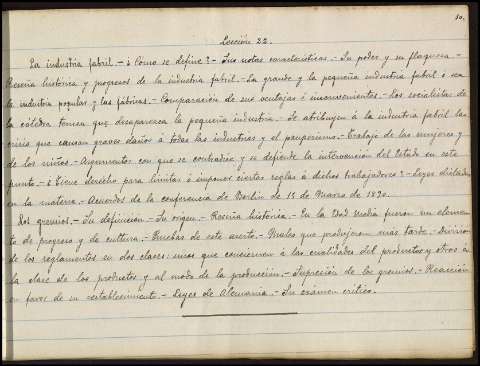 30.
Lección 22.
La industria fabril. - ¿Como se define? - Sus notas características. - Su poder y su flaqueza. -
Reseña histórica y progresos de la industria fabril. - La grande y la pequeña industria fabril ó sea
la industria popular y las fábricas. - Comparación de sus ventajas é inconvenientes. - Los socialistas de
la cátedra temen que desaparezca la pequeña industria. - Se atribuyen á la industria fabril las
crisis que causan graves daños á todas las industrias y el pauperismo. - Trabajo de las mujeres y
de los niños. - Argumentos con que se contradice y se defiende la intervención del Estado en este
punto. - ¿Tiene derecho para limitar é imponer ciertas reglas á dichos trabajadores? - Leyes dictadas
en la materia. - Acuerdos de la conferencia de Berlin de 15 de Marzo de 1890.
Los gremios. - Su definición. - Su origen. - Reseña histórica. - En la Edad Media fueron un elemen-
to de progreso y de cultura. - Pruebas de este aserto. - Males que produjeron más tarde. - División
de los reglamentos en dos clases: unos que conciernen á las cualidades del productor y otros á
la clase de los productos y al modo de la producción. - Supresión de los gremios. - Reacción
en favor de su restablecimiento. - Leyes de Alemania. - Su exámen crítico.